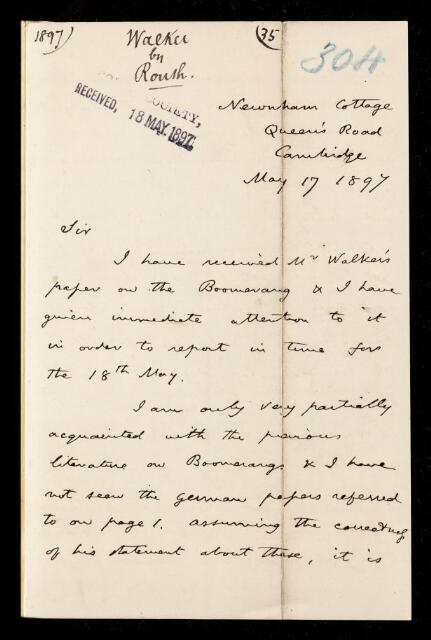 1897)
(35
304
Walker
by
Routh.
SOCIETY,
RECEIVED, 18 MAY. 1897
Newnham Cottage
Queen's Road
Cambridge
May 17 1897
Sir
I have received Mr Walker's
paper on the Boomerang & I have
given immediate attention to it
in order to report in time for
the 18th May.
I am only very partially
acquainted with the previous
literature on Boomerangs & I have
not seen the German papers referred
to on page 1. Assuming the correctness
of his statement about these, it is